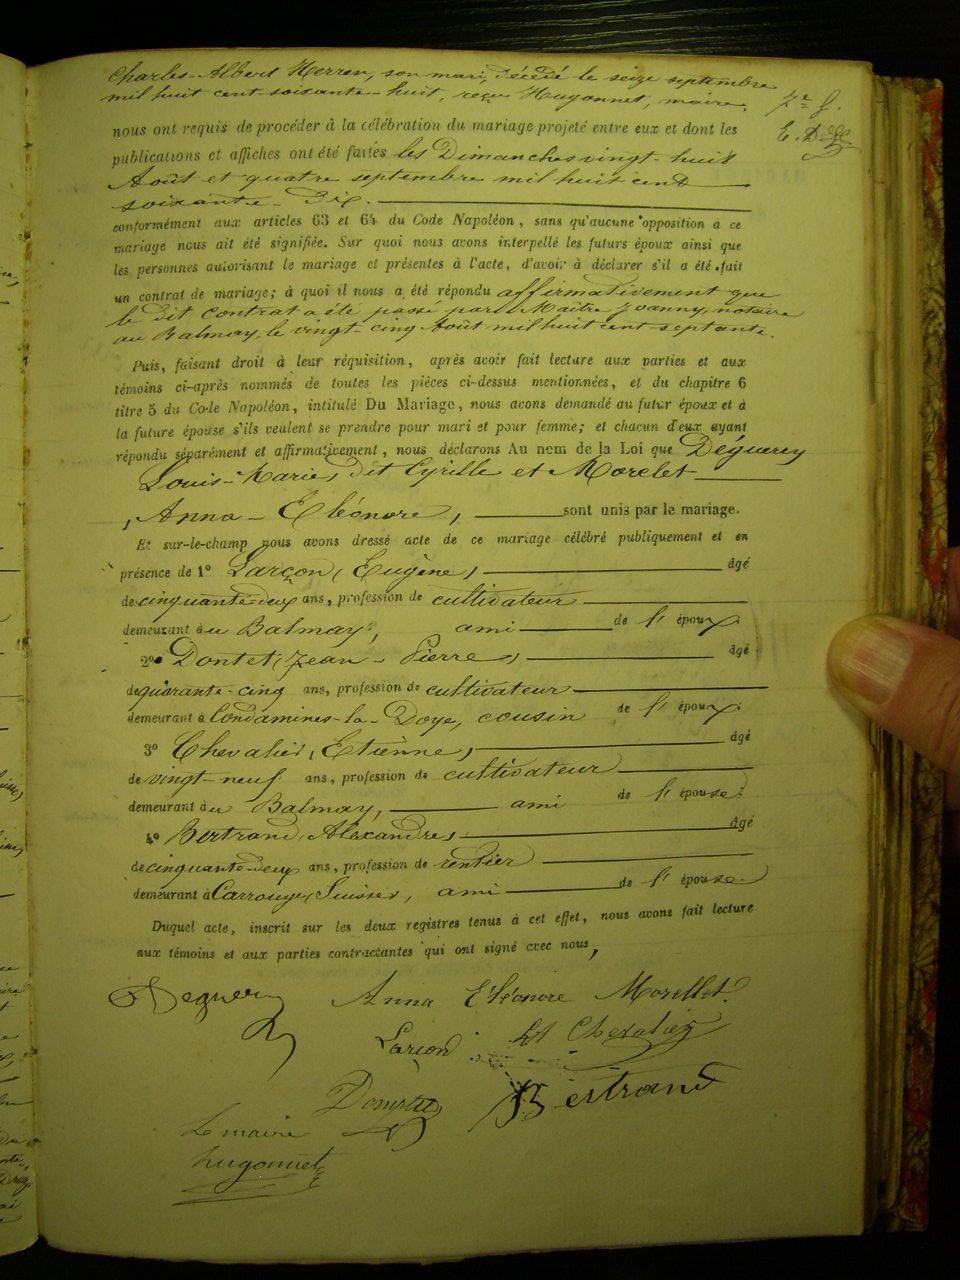 Charles-Albert Herren, son mari, décédé le seize septembre
mil huit cent-soixante-huit, reçu Hugonnet, maire,
nous ont requis de procéder à la célébration du mariage projeté entre eux et dont les
publications et affiches ont été faites les Dimanches vingt-huit
Août et quatre septembre mil huit cent
soixante-Dix.
conformément aux articles 63 et 64 du Code Napoléon, sans qu'aucune opposition à ce
mariage nous ait été signifiée. Sur quoi nous avons interpellé les futurs époux ainsi que
les personnes autorisant le mariage et présentes à l'acte, d'avoir à déclarer s'il a été fait
un contrat de mariage; à quoi il nous a été répondu affirmativement que
le dit contrat a été passé par Maître Joanny, notaire
au Balmay, le vingt-cinq Août mil huit cent septante.
Puis, faisant droit à leur réquisition, après avoir fait lecture aux parties et aux
témoins ci-après nommés de toutes les pièces ci-dessus mentionnées, et du chapitre 6
titre 5 du Code Napoléon, intitulé Du Mariage, nous avons demandé au futur époux et à
la future épouse s'ils veulent se prendre pour mari et pour femme; et chacun d'eux ayant
répondu séparément et affirmativement, nous déclarons Au nom de la Loi que Déguerey
Louis-Marie, dit Cyrille et Morelet
, Anna-Eléonore, sont unis par le mariage.
Et sur-le-champ nous avons dressé acte de ce mariage célébré publiquement et en
présence de 1° Larçon (Eugène) âgé
de cinquante-deux ans, profession de cultivateur
demeurant au Balmay, ami de l'époux.
2° Dontet (Jean-Pierre) âgé
de quarante-cinq ans, profession de cultivateur
demeurant à Condamines-la-Doye, cousin de l'époux.
3° Chevalier (Etienne) âgé
de vingt-neuf ans, profession de cultivateur
demeurant au Balmay, ami de l'épouse.
4° Bertrand (Alexandre) âgé
de cinquante-deux ans, profession de rentier
demeurant à Carrouge (Suisse), ami de l'épouse.
Duquel acte, inscrit sur les deux registres tenus à cet effet, nous avons fait lecture
aux témoins et aux parties contractantes qui ont signé avec nous,
Deguerey Anna Eléonore Morellet
Larçon Chevalier
Bertrand
Le maire
hugonnet